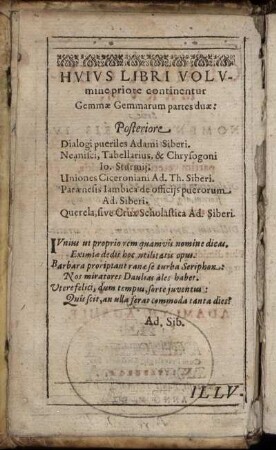 HVIVS LIBRI VOLV-
mine priore continentur
Gemmæ Gemmarum partes duæ:
Posteriore
Dialogi pueriles Adami Siberi.
Neanisci, Tabellarius, & Chrysogoni
Io. Sturmij.
Vniones Ciceroniani Ad. Th. Siberi.
Parænesis Iambica de officijs puerorum
Ad. Siberi.
Querela, sive Crux Scholastica Ad. Siberi.
VNius ut proprio rem quamvis nomine dicas,
Eximia dedit hoc utilitatis opus.
Barbara proripiant rane se turba Seriphon:
Nos miratores Daulias ales habet.
Vtere felici, dum tempus, sorte juventus:
Quis scit, an ulla feras commoda tanta dies?
Ad. Sib.
ILLV-